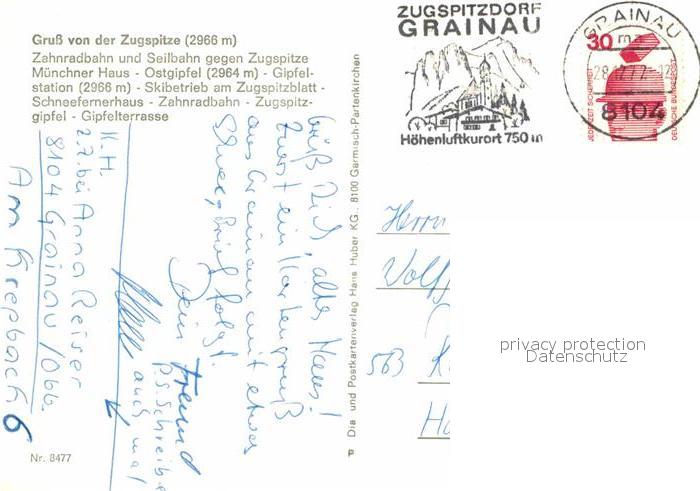 Gruß von der Zugspitze (2966 m)
Zahnradbahn und Seilbahn gegen Zugspitze
Münchner Haus - Ostgipfel (2964 m) - Gipfel-
station (2966 m) - Skibetrieb am Zugspitzblatt -
Schneefernerhaus - Zahnradbahn - Zugspitz-
gipfel - Gipfelterrasse
ZUGSPITZDORF
GRAINAU
Höhenluftkurort 750 m
GRAINAU
28.12.77-12
8104
30
JEDERZEIT SICHERHEIT
DEUTSCHE BUNDESPOST
Grüß Dich, altes Haus!
Zuerst ein Kartengruß
aus Grainau mit etwas
Schnee, Brief folgt!
Dein Freund
P.S. Schreibe
auch mal
H.H.
z.Z. bei Anna Reiser
8104 Grainau / Obb.
Am Krepbach 6
Dia- und Postkartenverlag Hans Huber KG., 8100 Garmisch-Partenkirchen
Herrn
Volf
563 R
Ha
privacy protection
Datenschutz
Nr. 8477